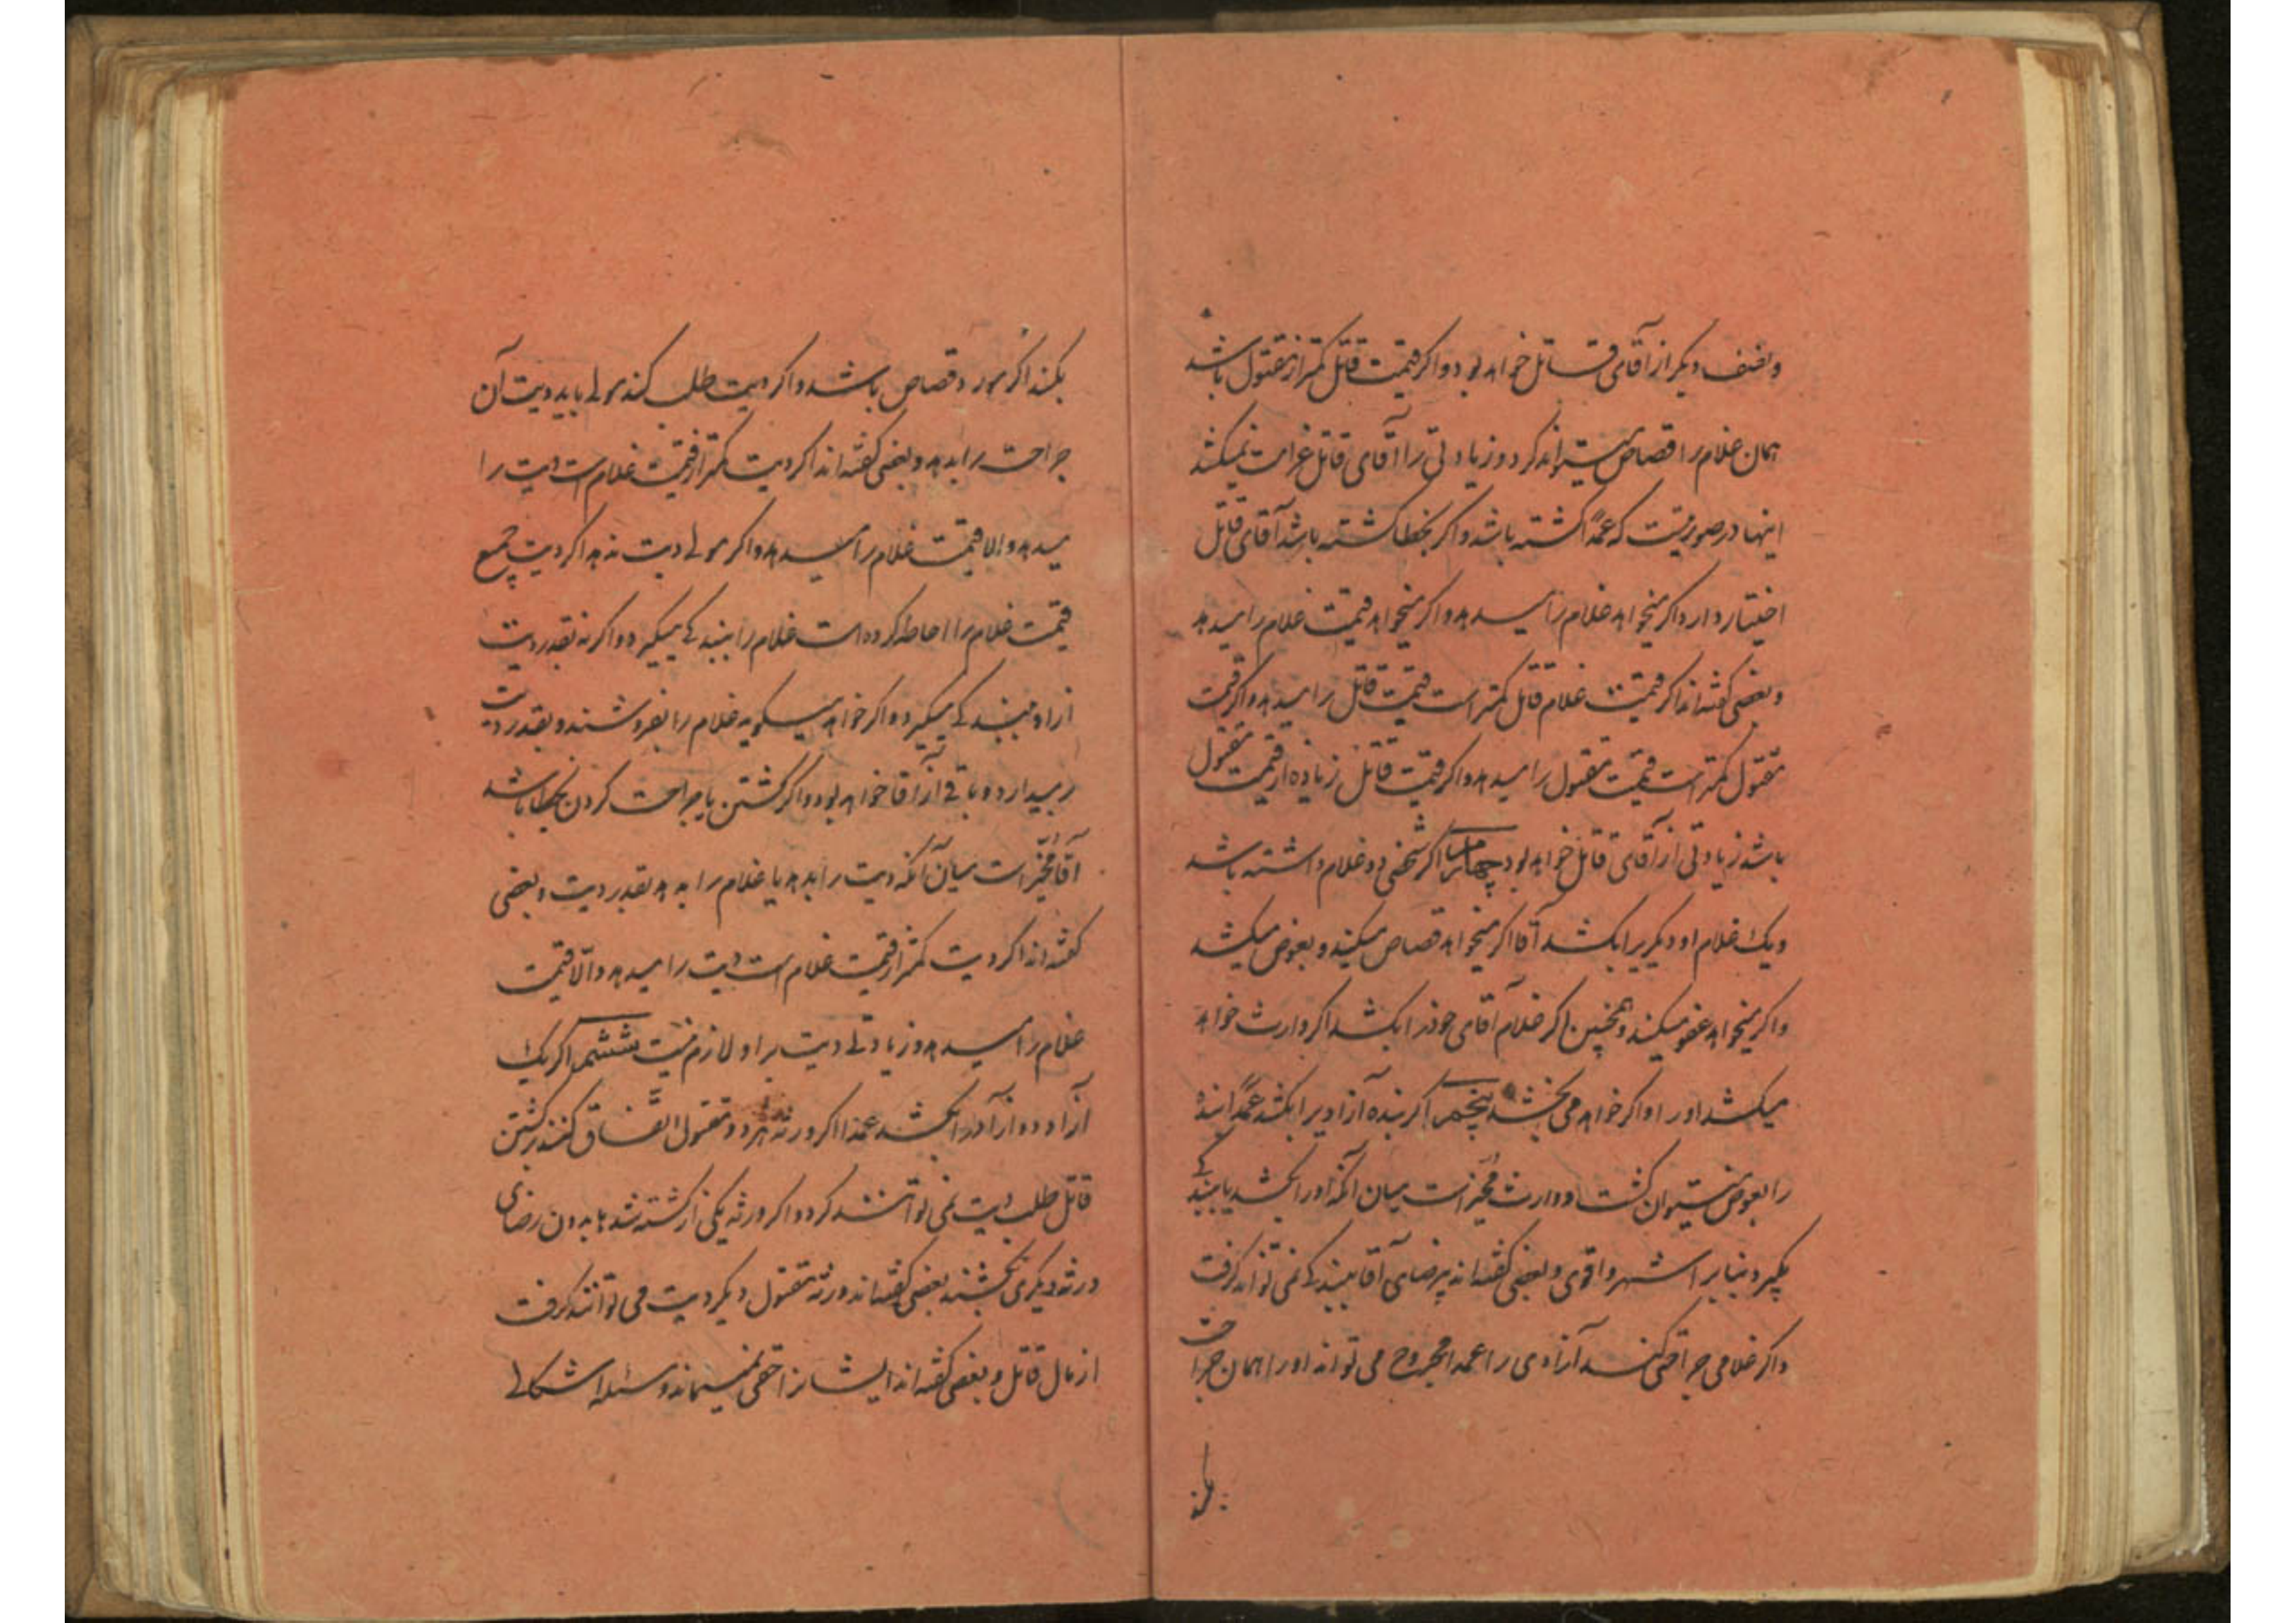 و نصف دیگر از آقای قاتل خواهد بود و اگر قیمت قاتل کمتر از مقتول باشد
همان غلام را قصاص میتواند کرد و زیادتی را آقای قاتل غرامت نمیکشد
اینها در صورتیست که عمداً کشته باشد و اگر بخطا کشته باشد آقای قاتل
اختیار دارد اگر میخواهد غلام را میدهد و اگر میخواهد قیمت غلام را میدهد
و بعضی گفته‌اند اگر قیمت غلام قاتل کمتر است قیمت قاتل را میدهد و اگر قیمت
مقتول کمتر است قیمت مقتول را میدهد و اگر قیمت قاتل زیاده از قیمت مقتول
باشد زیادتی از آقای قاتل خواهد بود چهارم اگر شخصی دو غلام داشته باشد
و یک غلام او دیگریرا بکشد آقا اگر میخواهد قصاص میکند و بعوض میکشد
و اگر میخواهد عفو میکند و همچنین اگر غلام آقای خودرا بکشد اگر وارث خواهد
میکشد اورا و اگر خواهد می بخشد پنجم اگر بنده آزادیرا بکشد عمداً بنده
را بعوض میتوان کشت و وارث مخیر است میان آنکه اورا بکشد یا ببندگی
بگیرد بنابر اشهر و اقوی و بعضی گفته‌اند بیرضای آقا ببندگی نمی تواند گرفت
و اگر غلامی جراحتی کند آزادی را عمدا مجروح می تواند اورا همان جراحت
بکند
بکند اگر مورد قصاص باشد و اگر دیت طلب کند مولی باید دیت آن
جراحت را بدهد و بعضی گفته‌اند اگر دیت کمتر از قیمت غلام است دیت را
میدهد والا قیمت غلام را میدهد و اگر مولی دیت ندهد اگر دیت جمیع
قیمت غلام را احاطه کرده است غلام را ببندگی میگیرد و اگر نه بقدر دیت
ازاو ببندگی میگیرد و اگر خواهد میگوید غلام را بفروشند و بقدر دیت
برمیدارد و باقی ازآن آقا خواهد بود و اگر کشتن یا جراحت کردن بخطا باشد
آقا مخیر است میان آنکه دیت را بدهد یا غلام را بدهد بقدر دیت و بعضی
گفته‌اند اگر دیت کمتر از قیمت غلام است دیت را میدهد والا قیمت
غلام را میدهد و زیادتی دیت براو لازم نیست ششم اگر یک
آزاد دو آزاد را بکشد عمدا اگر ورثه هر دو مقتول اتفاق کنند بر کشتن
قاتل طلب دیت نمی توانند کرد و اگر ورثه یکی از کشته شدها بدون رضای
ورثه دیگری بکشند بعضی گفته‌اند ورثه مقتول دیگر دیت می توانند گرفت
از مال قاتل و بعضی گفته‌اند ایشانرا حقی نمیماند و مسئله اشکالی